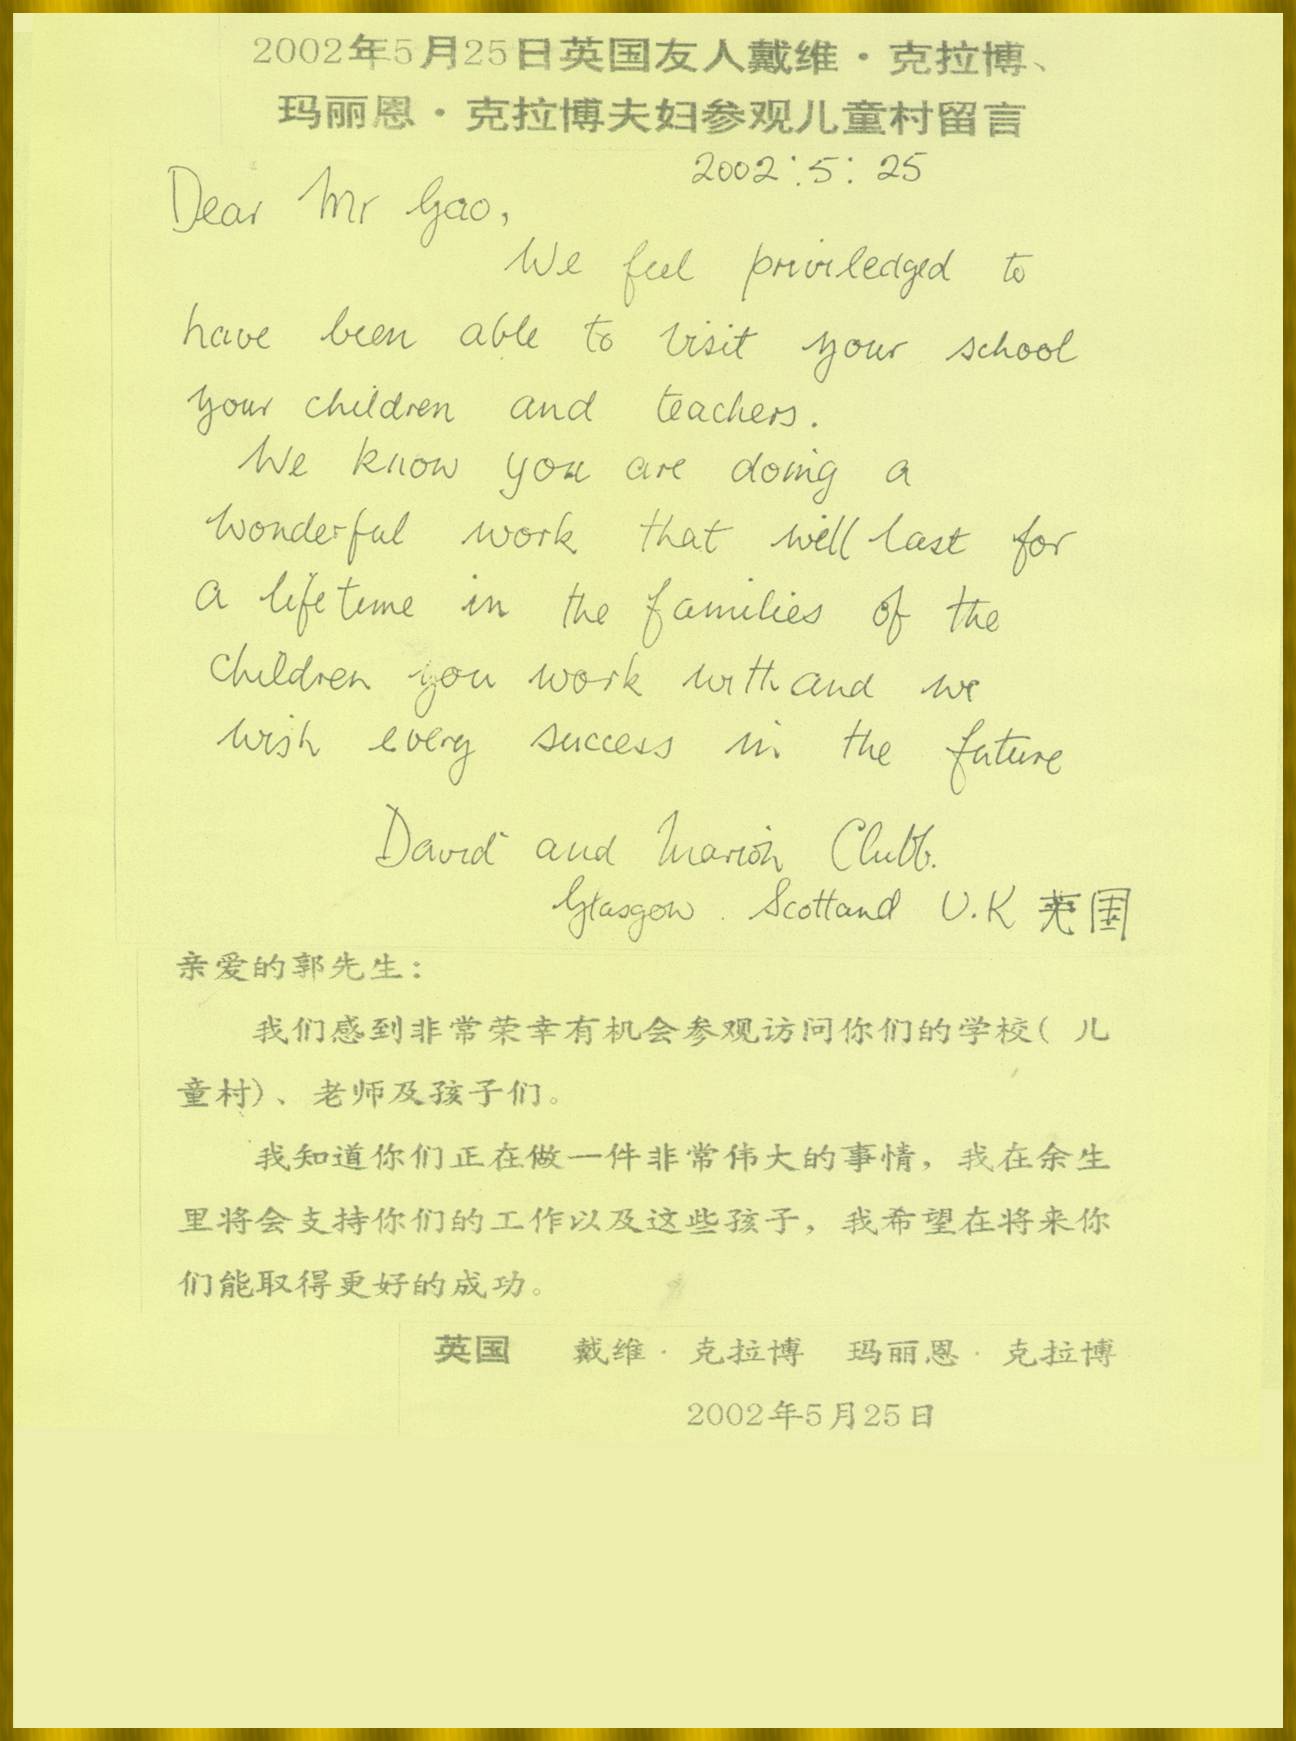 2002年5月25日英国友人戴维·克拉博、
玛丽恩·克拉博夫妇参观儿童村留言
2002:5:25
Dear Mr Gao,
We feel priviledged to
have been able to visit your school
your children and teachers.
We know you are doing a
wonderful work that will last for
a lifetime in the families of the
children you work with and we
wish every success in the future
David and Marion Clubb.
Glasgow. Scotland U.K 英国
亲爱的郭先生:
我们感到非常荣幸有机会参观访问你们的学校( 儿
童村)、老师及孩子们。
我知道你们正在做一件非常伟大的事情，我在余生
里将会支持你们的工作以及这些孩子，我希望在将来你
们能取得更好的成功。
英国 戴维·克拉博 玛丽恩·克拉博
2002年5月25日